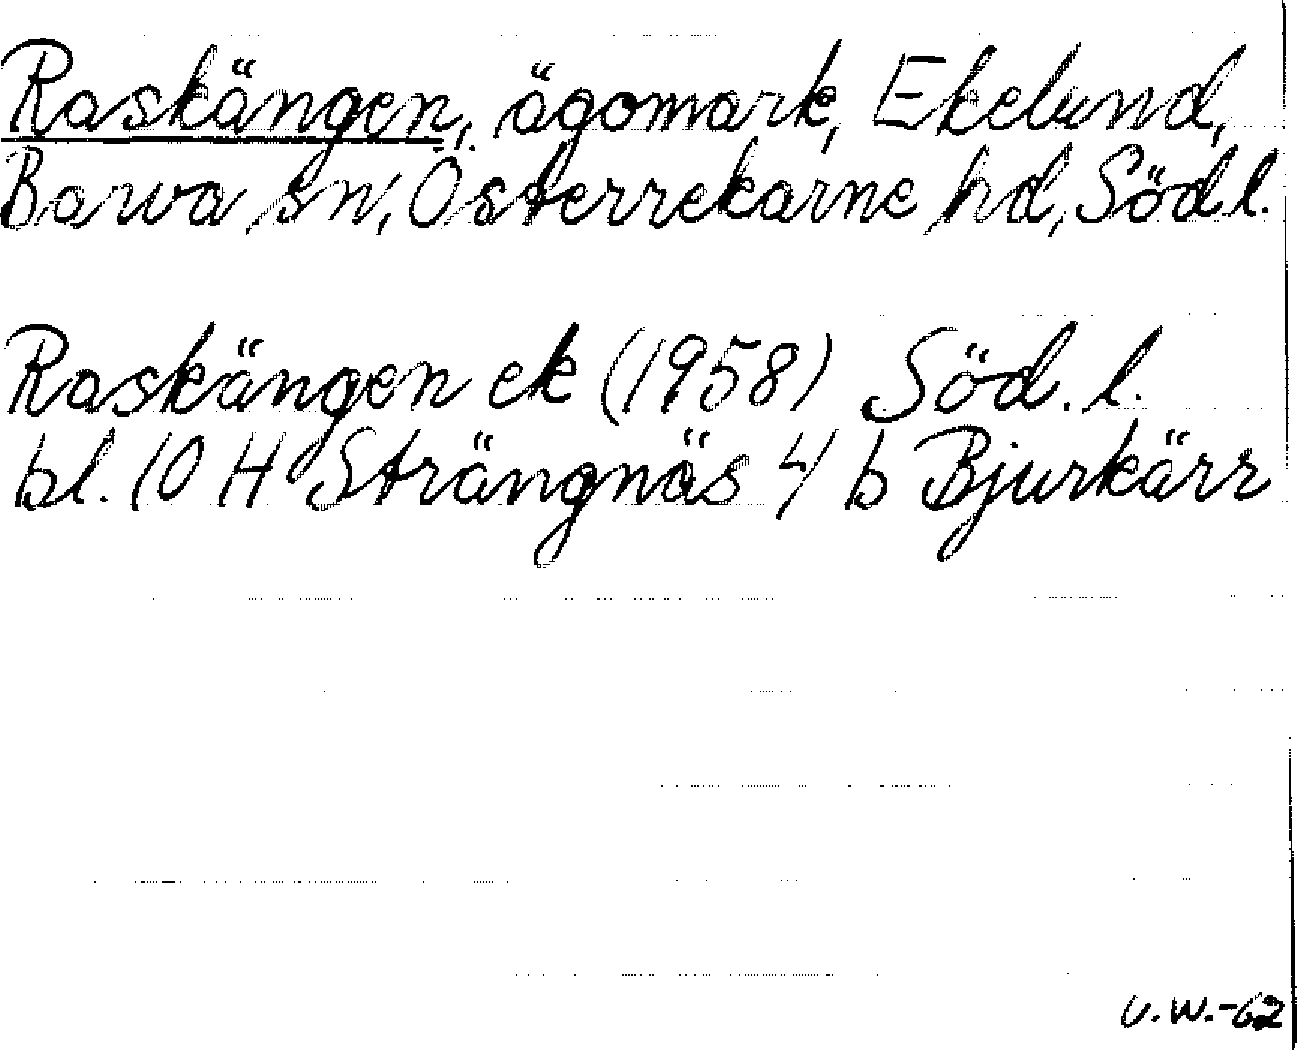 Raskängen, ägomark, Ekelund,
Barva sn, Österrekarne hd, Södl.
Raskängen ek (1958) Söd. l.
bl. 10 H Strängnäs 4 b Bjurkärr
U.W.-62